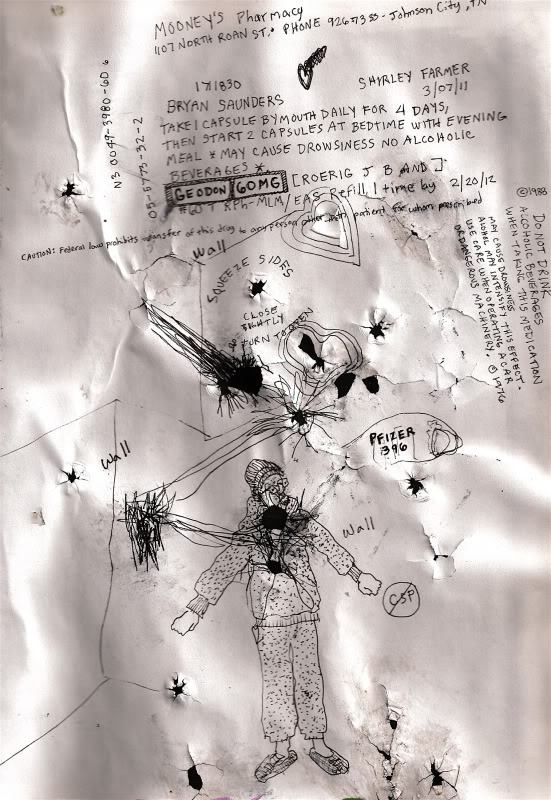 MOONEY'S Pharmacy
1107 NORTH ROAN ST. PHONE 926-7333 - Johnson City, TN
1711830
SHIRLEY FARMER
BRYAN SAUNDERS
3/07/11
TAKE 1 CAPSULE BY MOUTH DAILY FOR 4 DAYS,
THEN START 2 CAPSULES AT BEDTIME WITH EVENING
MEAL * MAY CAUSE DROWSINESS NO ALCOHOLIC
BEVERAGES *
GEODON 60MG [ROERIG J B AND]
RPh-MLM / EAS Refill, 1 time by 2/20/12
CAUTION: Federal law prohibits transfer of this drug to any person other than patient for whom prescribed
N3 0049-3980-60 6
05-5773-32-2
©1988
DO NOT DRINK
ALCOHOLIC BEVERAGES
WHEN TAKING THIS MEDICATION
MAY CAUSE DROWSINESS
ALCOHOL MAY INTENSIFY THIS EFFECT.
USE CARE WHEN OPERATING A CAR
OR DANGEROUS MACHINERY. ©1976
Wall
SQUEEZE SIDES
CLOSE
TIGHTLY
TURN TO OPEN
PFIZER
396
Wall
Wall
CSP